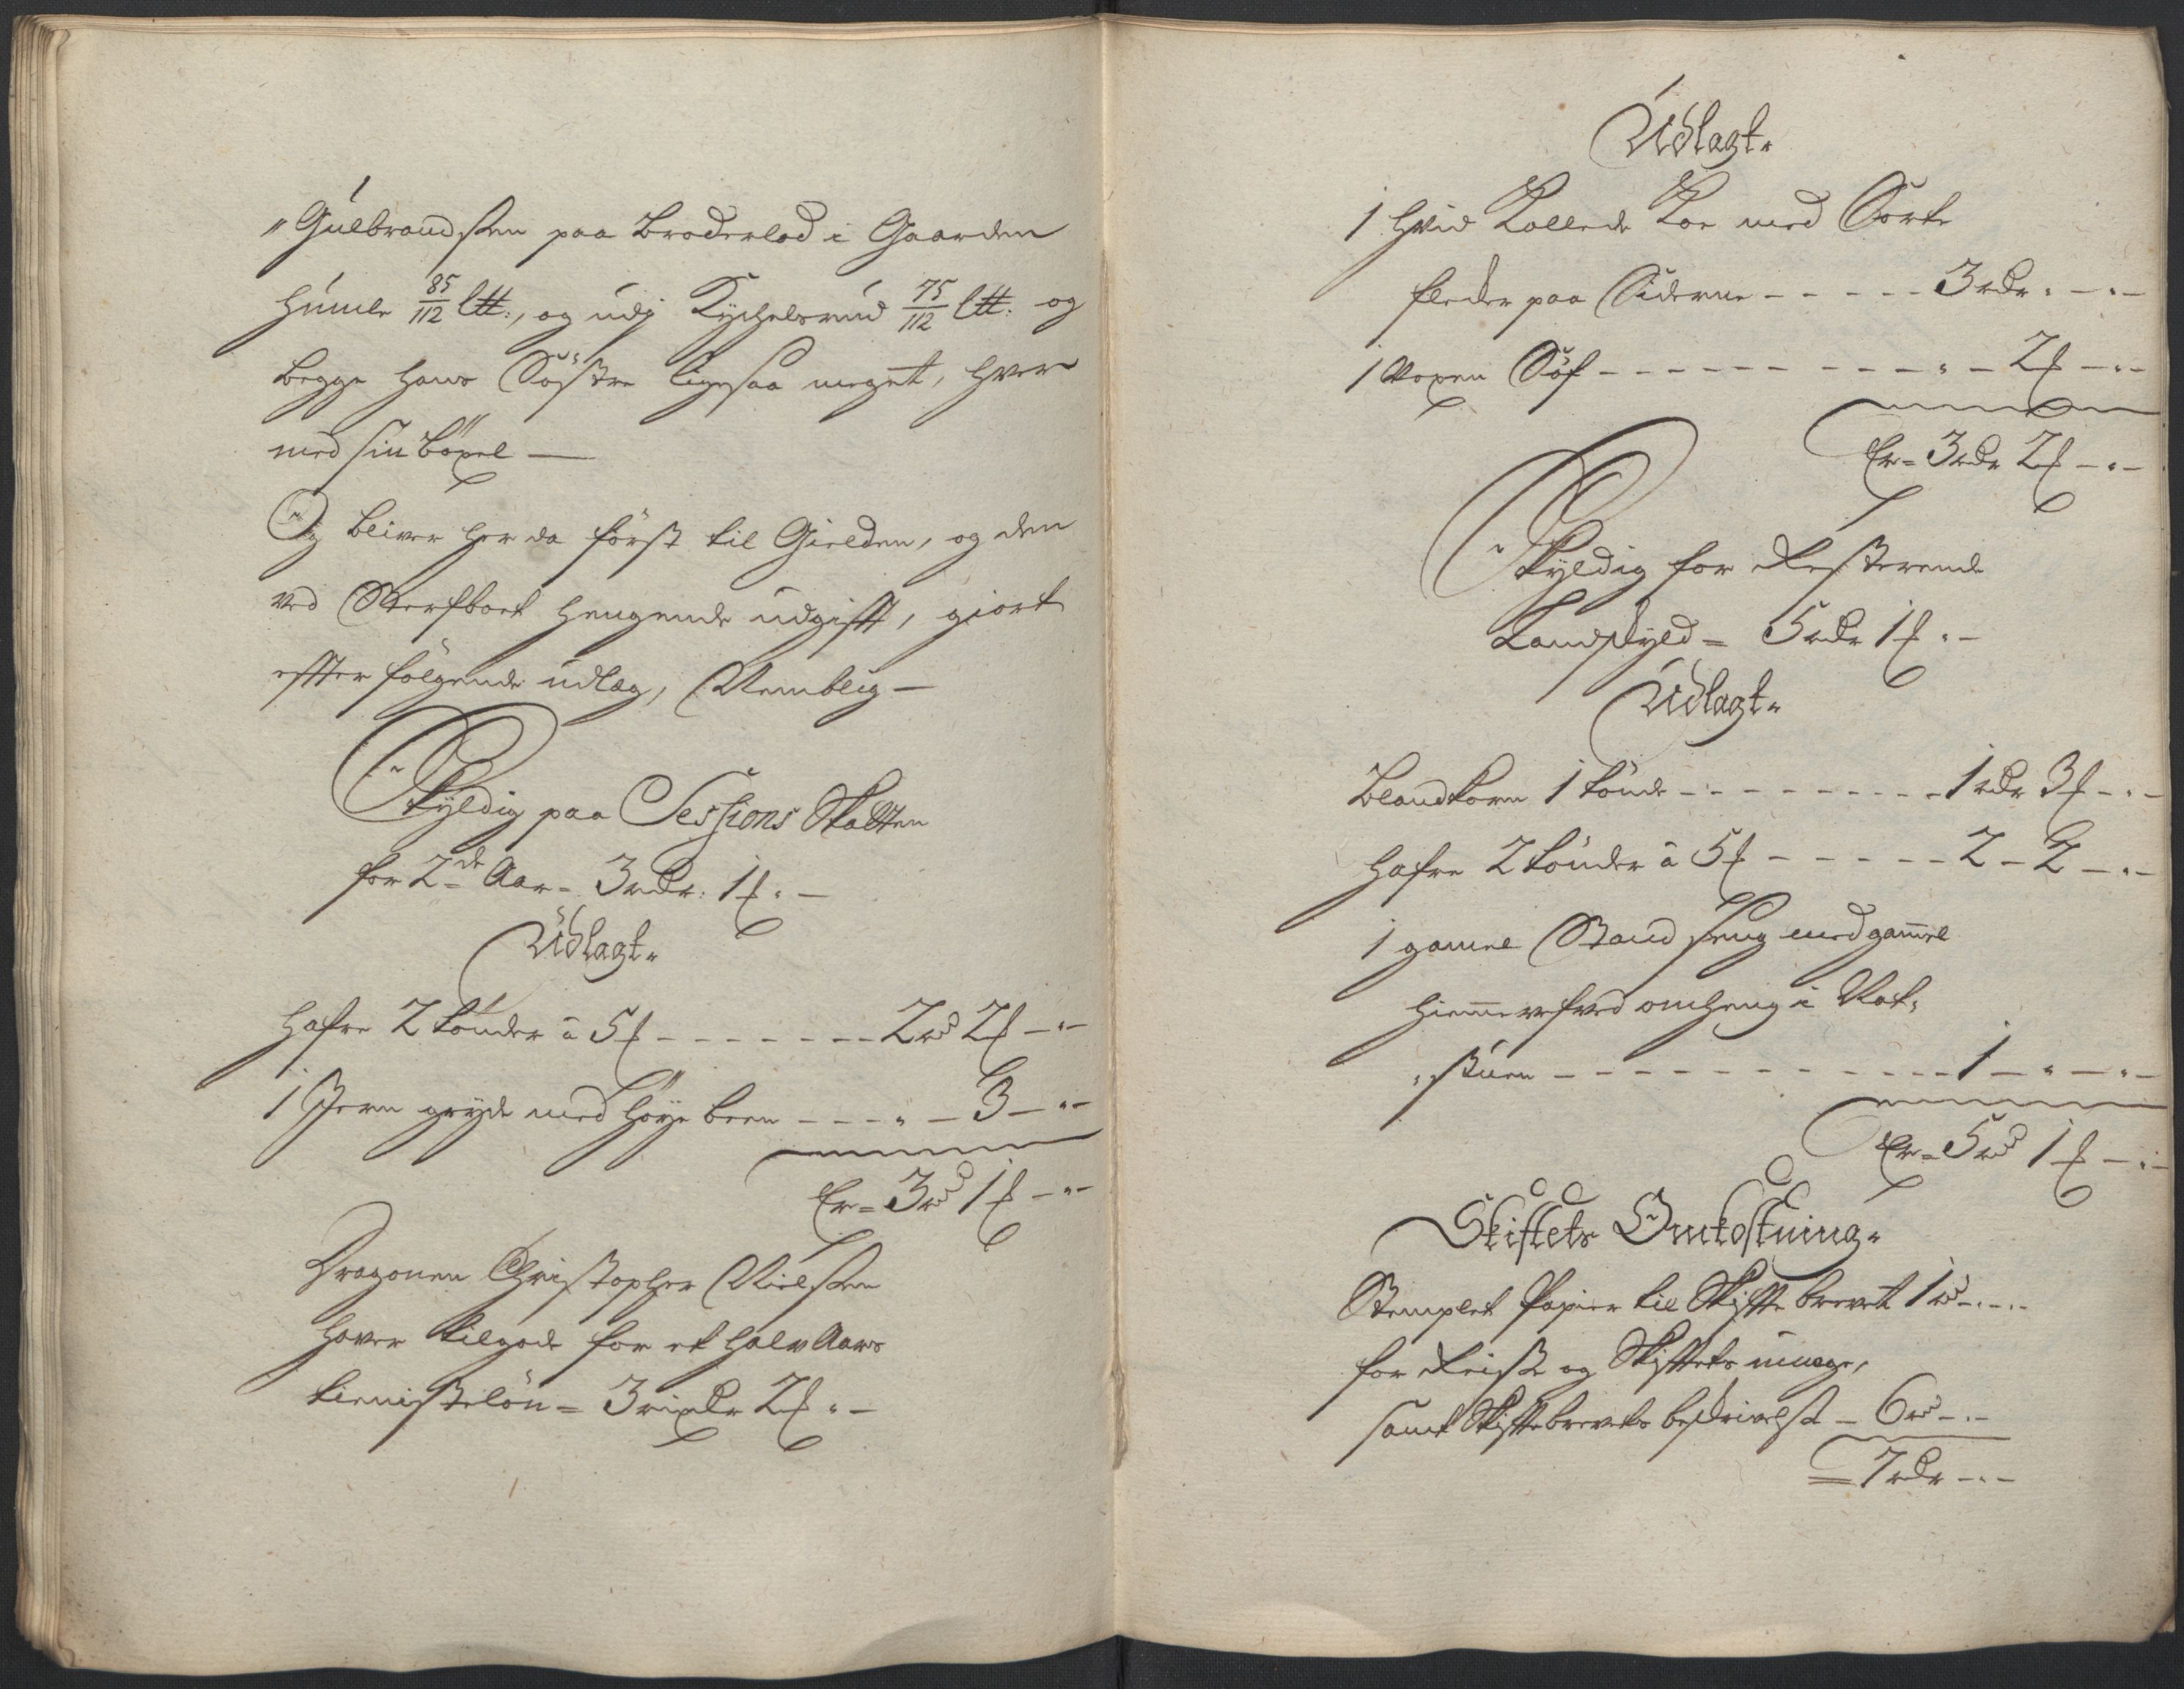 "Gulbrandsen paa Broderlod i Gaarden
Humle 85/112 l℔:, og udj Kychelsrud 75/112 l℔: og
begge hans Söstre ligesaa meget, hver
med sin böxel —
Og bliver her da först til Gielden, og den
ved Sterfboet hengende udgifft, giort
effter fölgende udlæg, Nemblig —
Skyldig paa Sessions Skatten
for 2de Aar = 3 rdr: 1 ß " —
Udlagt"
Hafre 2 tönder â 5 ß - - - - - - - 2 rd 2 ß — " —
1 Jern gryde med höye been - - - " — 3 — " —
Er = 3 rd 1 ß — " —
Dragonen Christopher Nielsen
haver tilgode for et halv Aars
tienisteløn = 3 rixdr 2 ß " —
Udlagt"
1 hvid Kollede Koe med Sorte
fleder paa Siderne - - - - - 3 rdr " — " —
1 Voxen Söf - - - - - - - - - - " — 2 ß — " —
Er = 3 rdr 2 ß — " —
Skyldig for Resterende
Landskyld = 5 rdr 1 ß " —
Udlagt"
Blandkorn 1 tönde - - - - - - - - - 1 rdr 3 ß — " —
Hafre 2 tönder â 5 ß - - - - - - 2 — 2 — " —
1 gamel Stand seng med gam̄el
hiem̄evefved omheng i Nat"
"stuen - - - - - - - - - - - - 1 — " — " —
Er = 5 rd 1 ß — " —
Skiftets Omkostning"
Stemplet Papier til Skifte brevet 1 rd — " — " —
for Reise og Skiftets umage,
samt Skiftebrevets beskrivelse — 6 rd — " —
= 7 rdr — " —